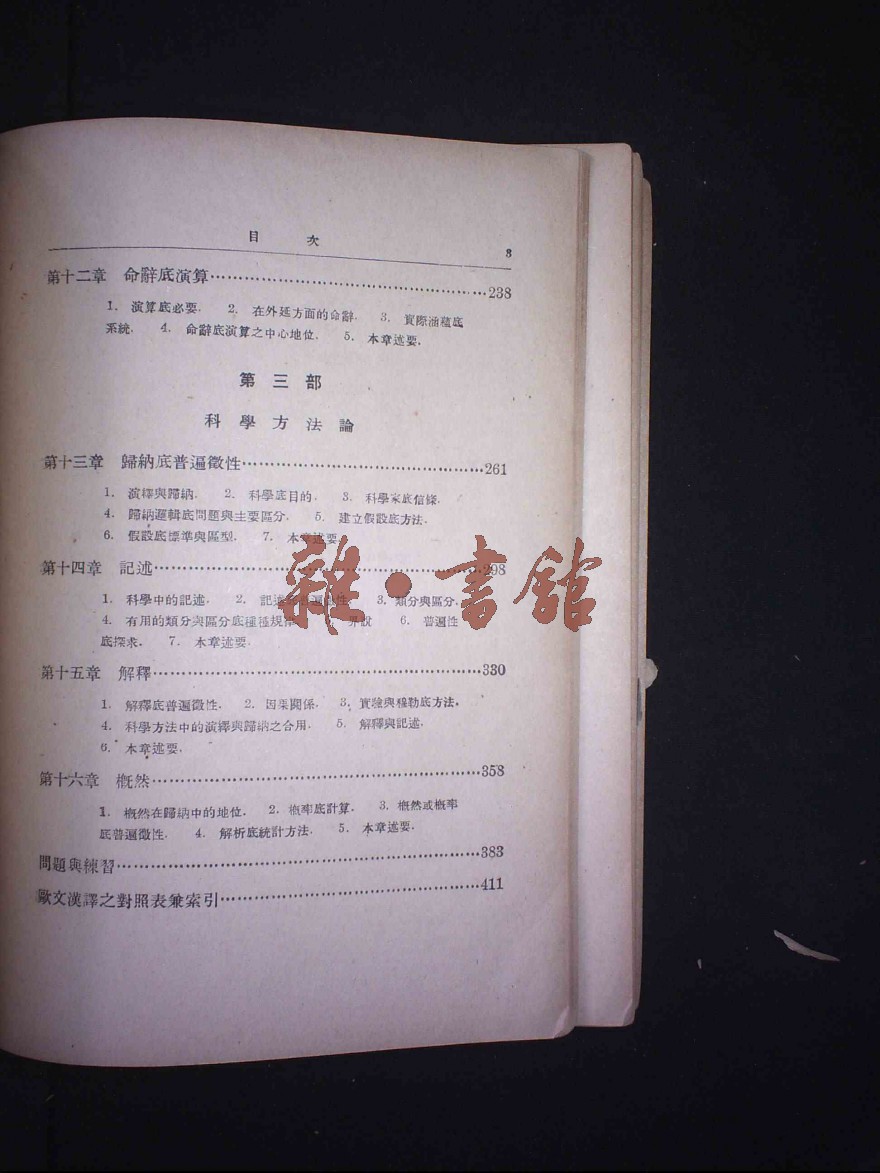 目 次 3
第十二章 命辭底演算……238
1. 演算底必要. 2. 在外延方面的命辭. 3. 實際涵蘊底
系統. 4. 命辭底演算之中心地位. 5. 本章述要.
第三部
科學方法論
第十三章 歸納底普遍徵性……261
1. 演繹與歸納. 2. 科學底目的. 3. 科學家底信條.
4. 歸納邏輯底問題與主要區分. 5. 建立假設底方法.
6. 假設底標準與區型. 7. 本章述要.
第十四章 記述……298
1. 科學中的記述. 2. 記述 普遍徵性. 3. 類分與區分.
4. 有用的類分與區分底種種規律 界說 6. 普遍性
底探求. 7. 本章述要.
第十五章 解釋……330
1. 解釋底普遍徵性. 2. 因果關係. 3. 實驗與穆勒底方法.
4. 科學方法中的演繹與歸納之合用. 5. 解釋與記述.
6. 本章述要.
第十六章 概然……358
1. 概然在歸納中的地位. 2. 概率底計算. 3. 概然或概率
底普遍徵性. 4. 解析底統計方法. 5. 本章述要.
問題與練習……383
歐文漢譯之對照表兼索引……411
雜·書館